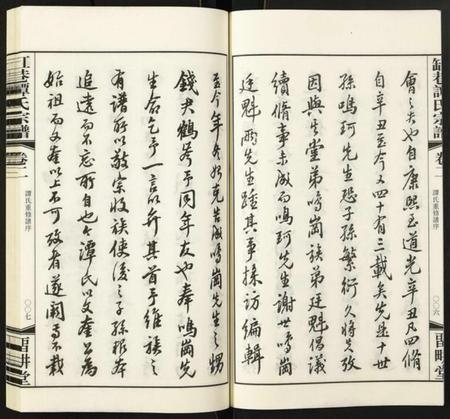 缸巷譚氏宗譜
卷二
譚氏重修譜序
〇〇六
習畊堂
會之文也自康熙至道光辛丑凡四脩
自辛丑至今又四十有三載矣先是十世
孫鳴珂先生恐子孫繁衍久將失攷
因與堂弟鳴崗族弟廷魁倡議
續脩事未成而鳴珂先生謝世鳴崗
廷魁兩先生踵其事採訪編輯
至今年冬始克告成鳴崗先生之甥
錢君鶴岑予同年友也奉鳴崗先
生命乞予一言以弁其首予維族之
有譜所以敬宗收族使後之子孫報本
追遠而不忘所自也今譚氏以文奎公為
始祖而文奎以上不可攷者遂闕焉不載
缸巷譚氏宗譜
卷二
譚氏重修譜序
〇〇七
習畊堂